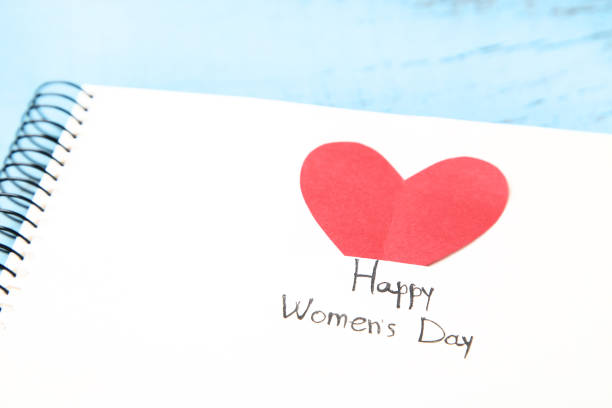 Happy
Women's Day